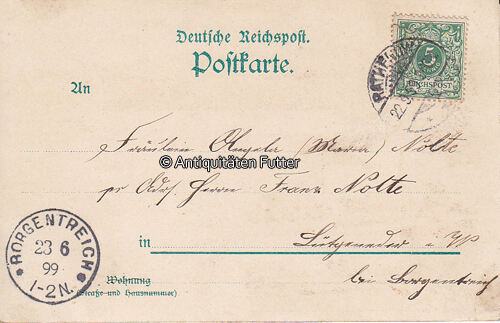 Deutsche Reichspost.
Postkarte.
An
5
REICHSPOST
Fräulein Angela (Maria) Nolte
© Antiquitäten Futter
pr Adr. Herrn Franz Nolte
in Lütgeneder i. W
bei Borgentreich
Wohnung
(Straße und Hausnummer)
BORGENTREICH
23 6
99
1-2N.